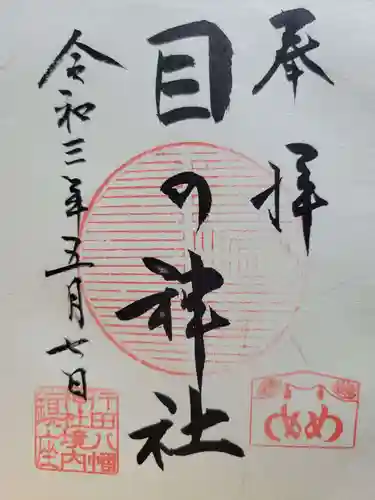 奉拝
目の神社
令和三年五月七日
め
行田八幡
神社境内
鎮座